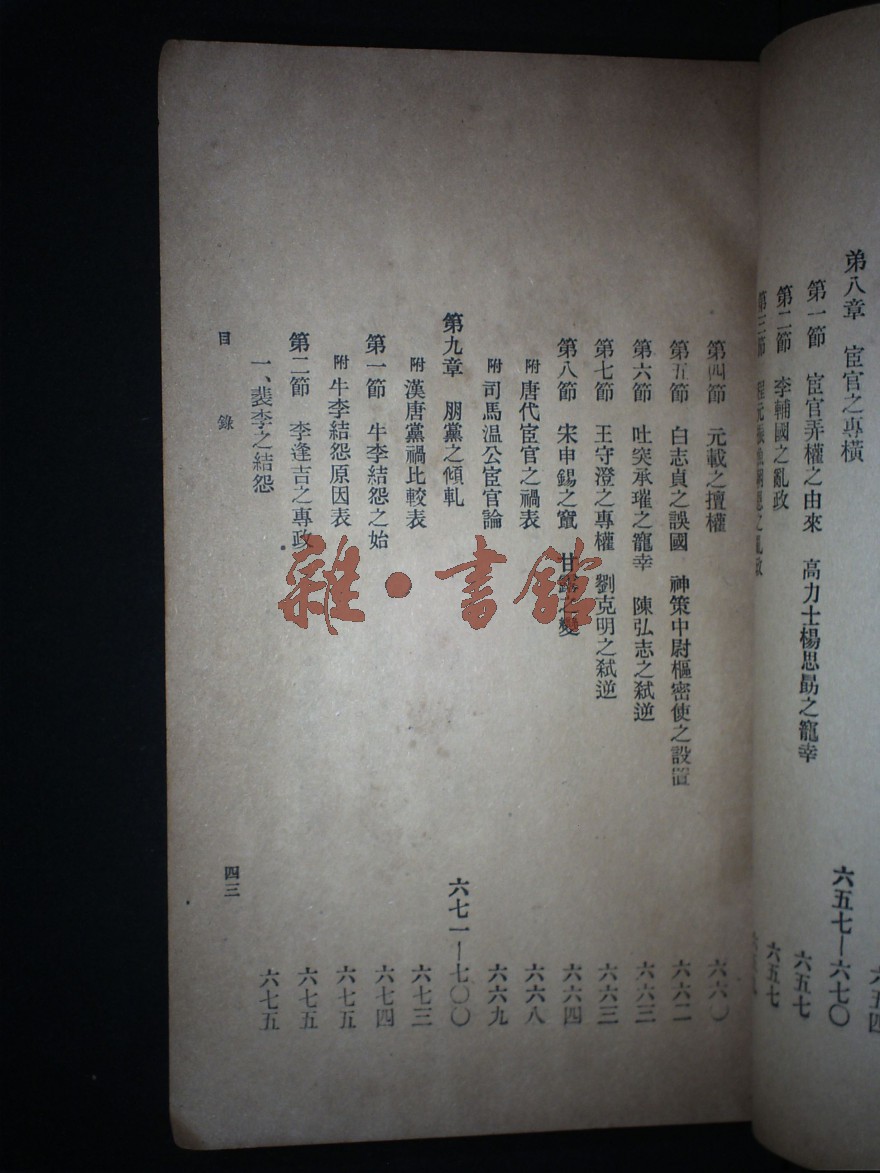 弟八章 宦官之專橫 六五七—六七〇
第一節 宦官弄權之由來 高力士楊思勗之寵幸 六五七
第二節 李輔國之亂政 六五七
第三節 程元振
第四節 元載之擅權 六六〇
第五節 白志貞之誤國 神策中尉樞密使之設置 六六二
第六節 吐突承璀之寵幸 陳弘志之弒逆 六六三
第七節 王守澄之專權 劉克明之弒逆 六六三
第八節 宋申錫之竄 甘露之變 六六四
附 唐代宦官之禍表 六六八
附 司馬温公宦官論 六六九
第九章 朋黨之傾軋 六七一—七〇〇
附 漢唐黨禍比較表 六七三
第一節 牛李結怨之始 六七四
附 牛李結怨原因表 六七五
第二節 李逢吉之專政 六七五
一、裴李之結怨 六七五
目錄 四三
雜·書館